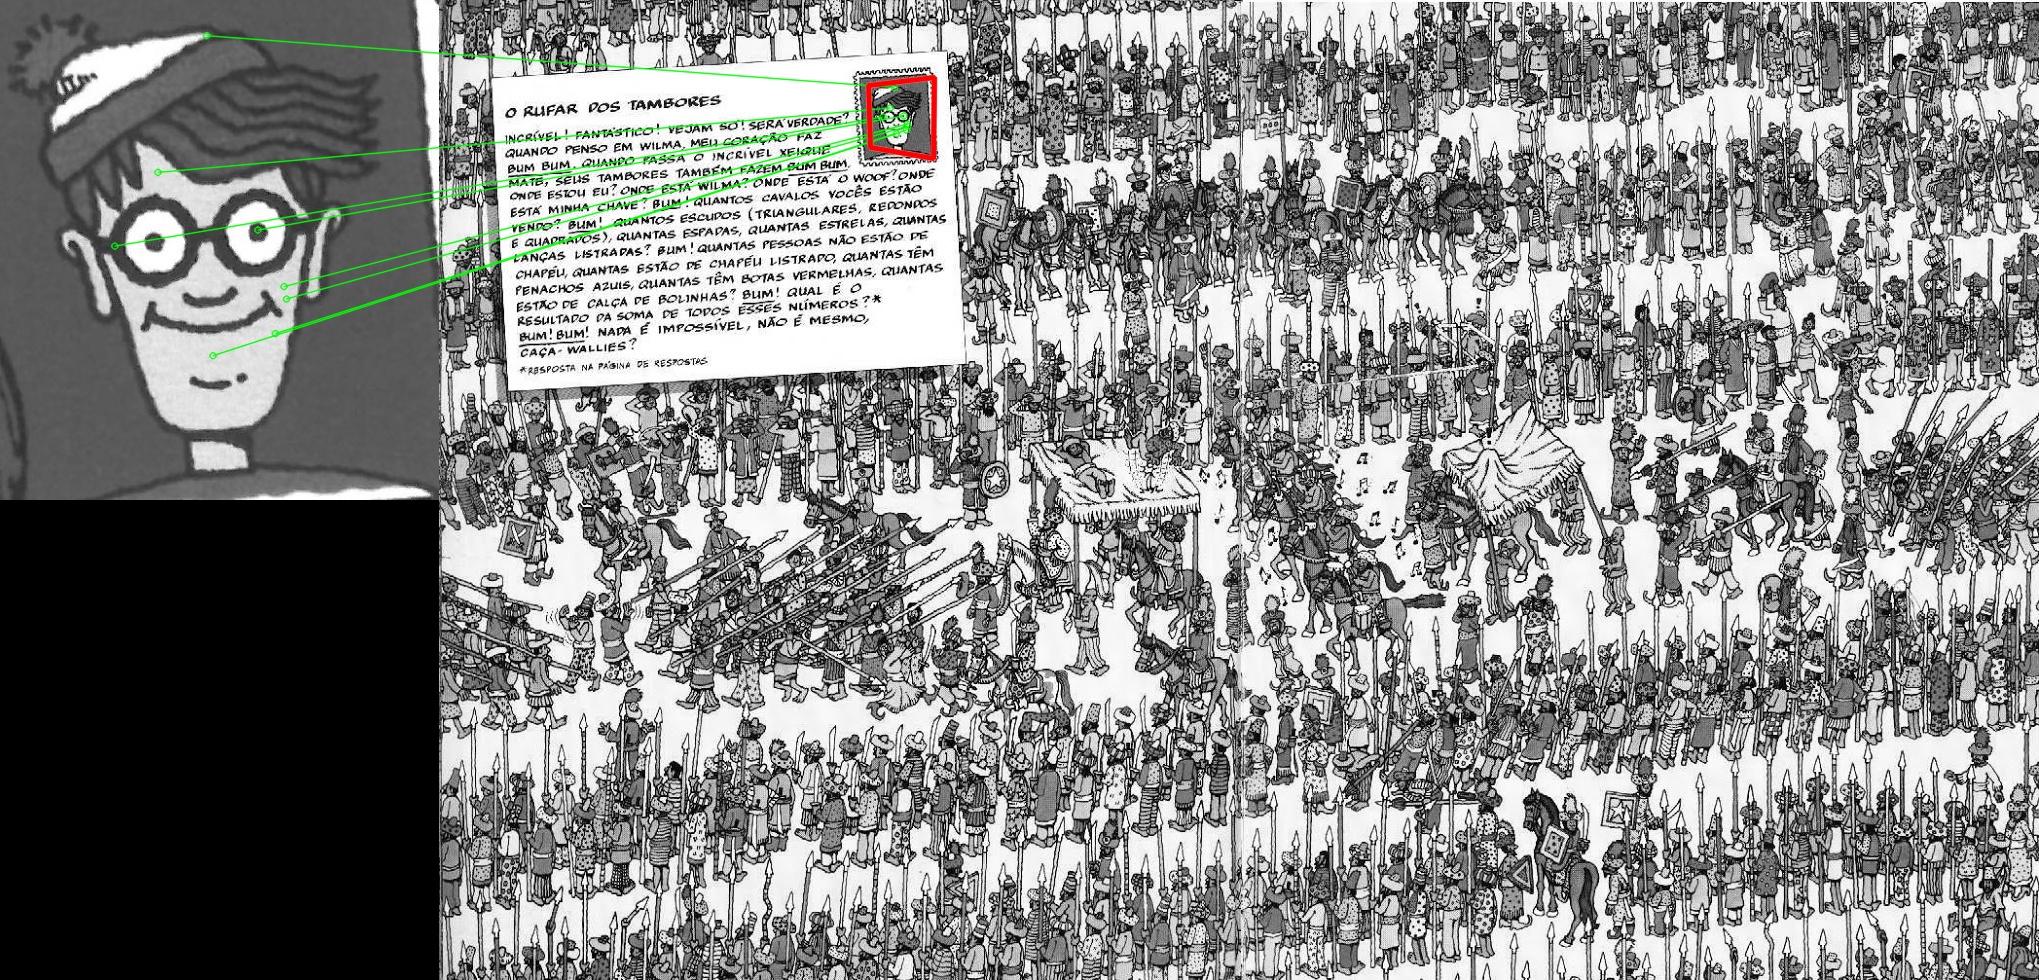 O RUFAR DOS TAMBORES
INCRÍVEL! FANTÁSTICO! VEJAM SÓ! SERÁ VERDADE?
QUANDO PENSO EM WILMA, MEU CORAÇÃO FAZ
BUM BUM. QUANDO PASSA O INCRÍVEL XEIQUE
MATE, SEUS TAMBORES TAMBÉM FAZEM BUM BUM.
ONDE ESTOU EU? ONDE ESTÁ WILMA? ONDE ESTÁ O WOOF? ONDE
ESTÁ MINHA CHAVE? BUM! QUANTOS CAVALOS VOCÊS ESTÃO
VENDO? BUM! QUANTOS ESCUDOS (TRIANGULARES, REDONDOS
E QUADRADOS), QUANTAS ESPADAS, QUANTAS ESTRELAS, QUANTAS
LANÇAS LISTRADAS? BUM! QUANTAS PESSOAS NÃO ESTÃO DE
CHAPÉU, QUANTAS ESTÃO DE CHAPÉU LISTRADO, QUANTAS TÊM
PENACHOS AZUIS, QUANTAS TÊM BOTAS VERMELHAS, QUANTAS
ESTÃO DE CALÇA DE BOLINHAS? BUM! QUAL É O
RESULTADO DA SOMA DE TODOS ESSES NÚMEROS?*
BUM! BUM! NADA É IMPOSSÍVEL, NÃO É MESMO,
CAÇA-WALLIES?
*RESPOSTA NA PÁGINA DE RESPOSTAS